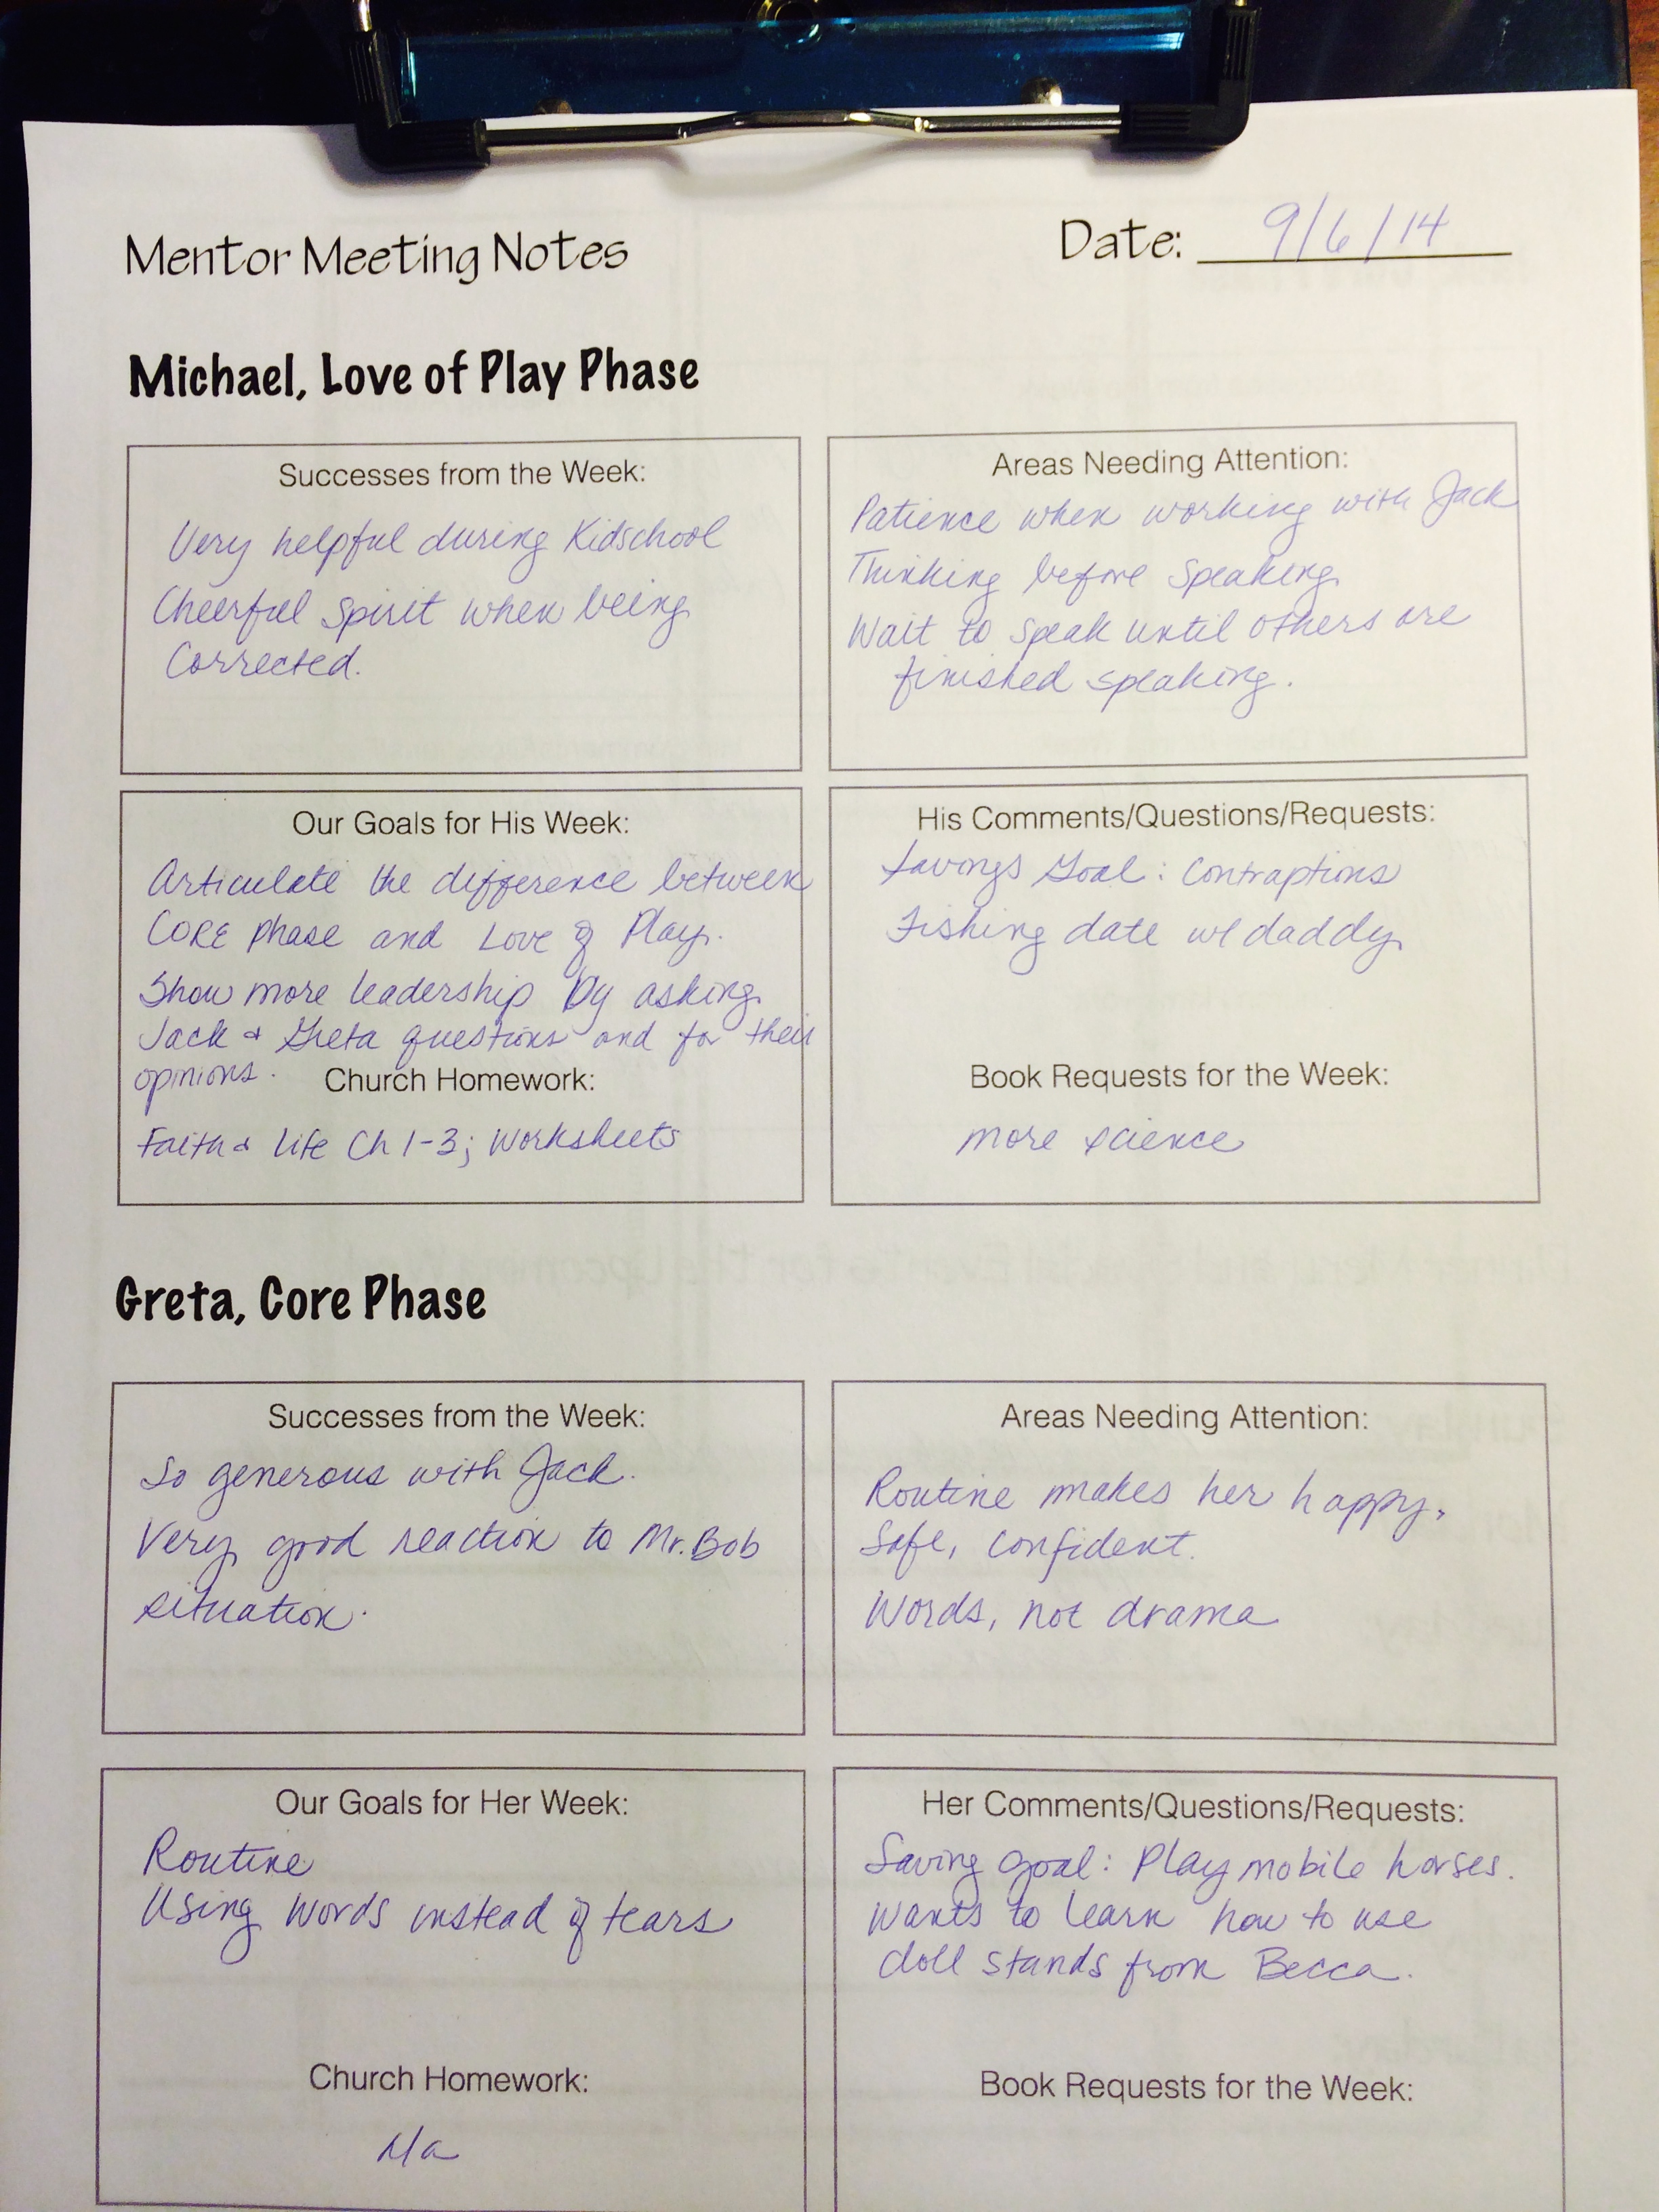 Mentor Meeting Notes
Date: 9/6/14
Michael, Love of Play Phase
Successes from the Week:
Very helpful during Kidschool
Cheerful spirit when being
corrected.
Areas Needing Attention:
Patience when working with Jack
Thinking before speaking
Wait to speak until others are
finished speaking.
Our Goals for His Week:
Articulate the difference between
CORE phase and Love of Play.
Show more leadership by asking
Jack & Greta questions and for their
opinions.
Church Homework:
Faith & Life Ch 1-3; Worksheets
His Comments/Questions/Requests:
Savings Goal: Contraptions
Fishing date w/ daddy
Book Requests for the Week:
more science
Greta, Core Phase
Successes from the Week:
So generous with Jack.
Very good reaction to Mr. Bob
situation.
Areas Needing Attention:
Routine makes her happy,
safe, confident.
Words, not drama
Our Goals for Her Week:
Routine
Using words instead of tears
Church Homework:
n/a
Her Comments/Questions/Requests:
Saving goal: Playmobile horses.
Wants to learn how to use
doll stands from Becca.
Book Requests for the Week: